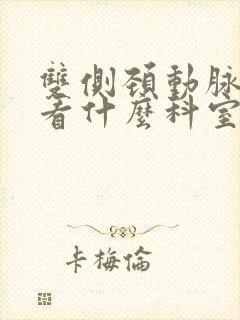 雙側頸動脈
看什麼科室
卡梅倫